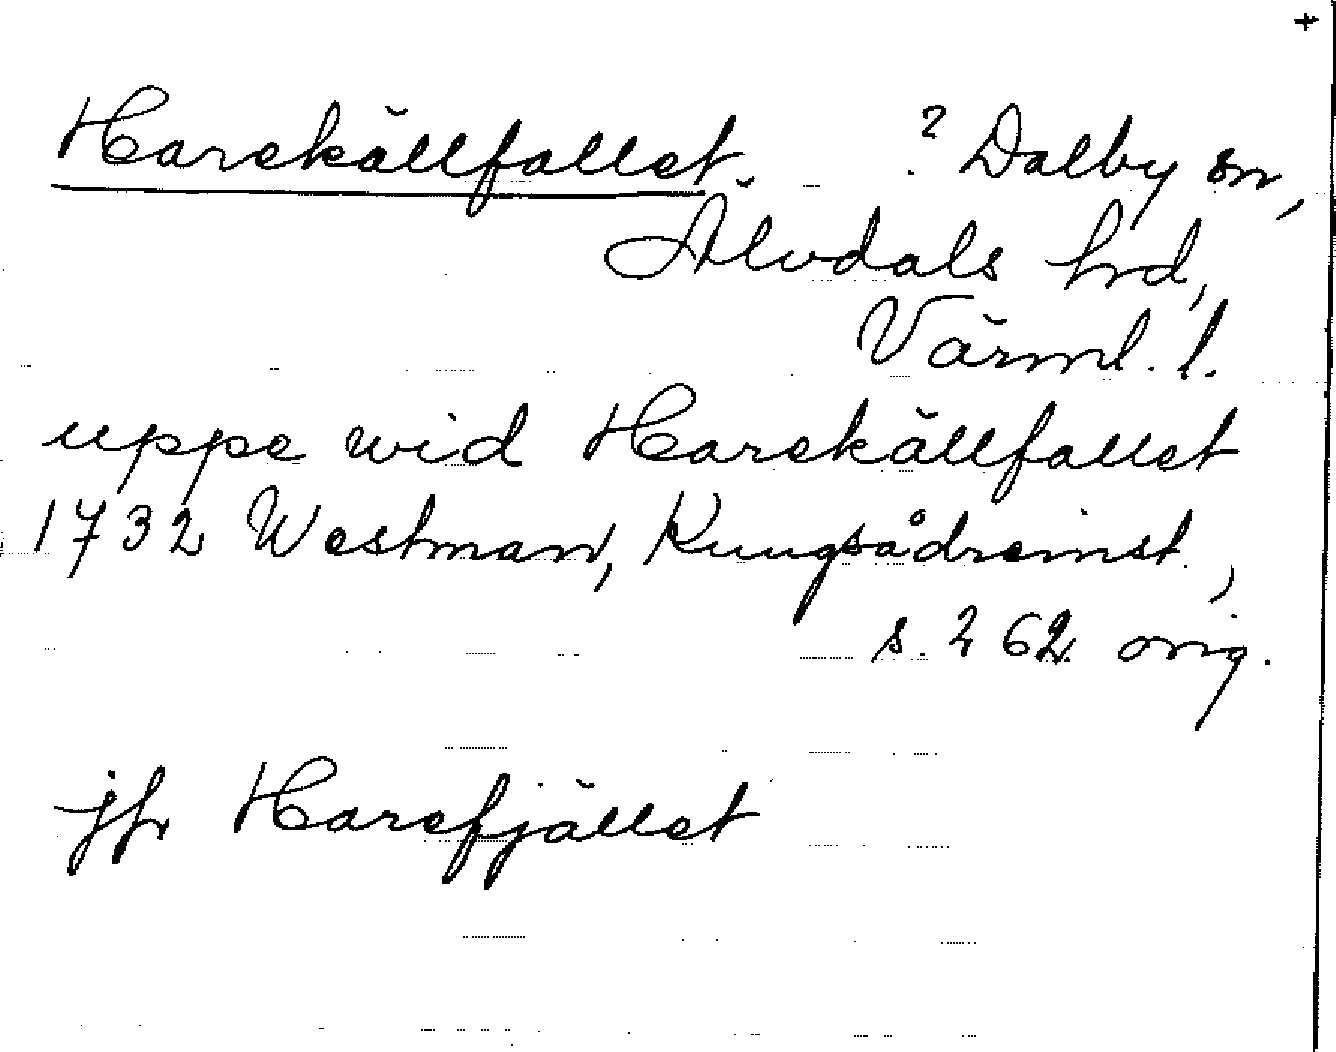 +
Harekällfallet. ? Dalby sn,
Älvdals hrd,
Värml. l.
uppe wid Harekällfallet
1732 Westman, Kungsådreinst.,
s. 262 orig.
jfr Harefjället